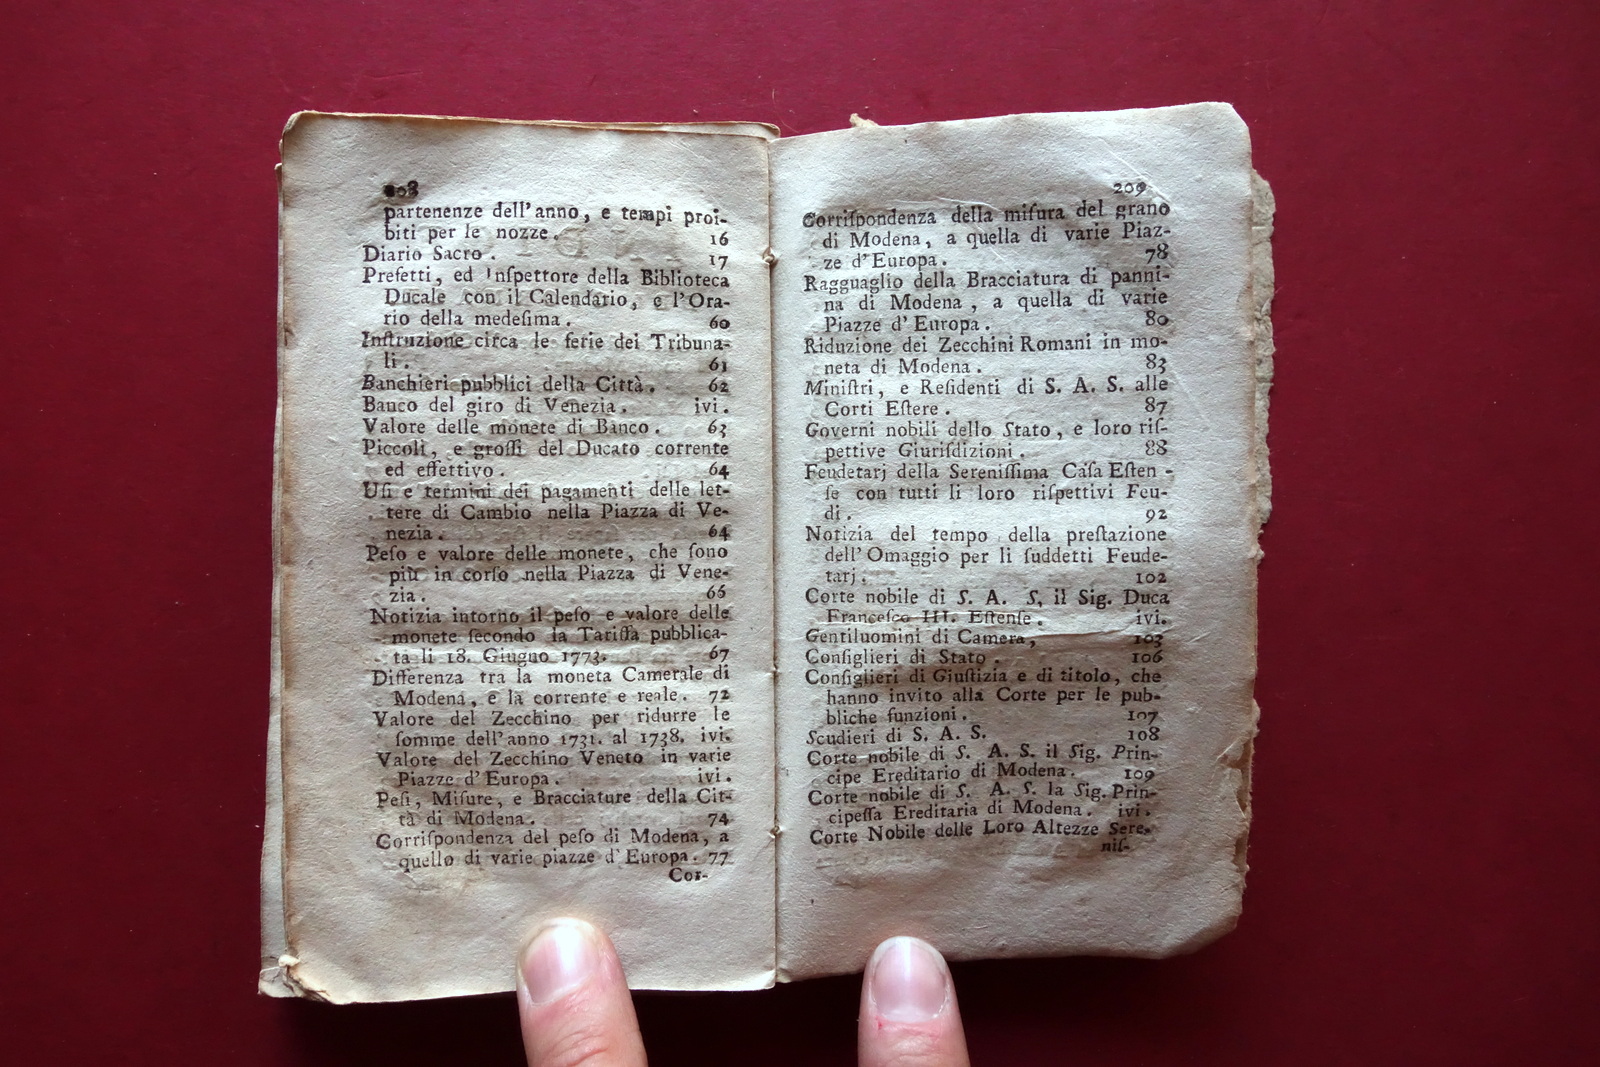 208
partenenze dell'anno, e tempi proi-
biti per le nozze. 16
Diario Sacro. 17
Prefetti, ed Inſpettore della Biblioteca
Ducale con il Calendario, e l'Ora-
rio della medeſima. 60
Inſtruzione circa le ferie dei Tribuna-
li. 61
Banchieri pubblici della Città. 62
Banco del giro di Venezia. ivi.
Valore delle monete di Banco. 63
Piccoli, e groſſi del Ducato corrente
ed effettivo. 64
Uſi e termini dei pagamenti delle let-
tere di Cambio nella Piazza di Ve-
nezia. 64
Peſo e valore delle monete, che ſono
più in corſo nella Piazza di Vene-
zia. 66
Notizia intorno il peſo e valore delle
monete ſecondo la Tariffa pubblica-
ta li 18. Giugno 1773. 67
Differenza tra la moneta Camerale di
Modena, e la corrente e reale. 72
Valore del Zecchino per ridurre le
ſomme dell'anno 1731. al 1738. ivi.
Valore del Zecchino Veneto in varie
Piazze d'Europa. ivi.
Peſi, Miſure, e Bracciature della Cit-
tà di Modena. 74
Corriſpondenza del peſo di Modena, a
quello di varie piazze d'Europa. 77
Cor-
209
Corriſpondenza della miſura del grano
di Modena, a quella di varie Piaz-
ze d'Europa. 78
Ragguaglio della Bracciatura di panni-
na di Modena, a quella di varie
Piazze d'Europa. 80
Riduzione dei Zecchini Romani in mo-
neta di Modena. 83
Miniſtri, e Reſidenti di S. A. S. alle
Corti Eſtere. 87
Governi nobili dello Stato, e loro riſ-
pettive Giuriſdizioni. 88
Feudetarj della Sereniſſima Caſa Eſten-
ſe con tutti li loro riſpettivi Feu-
di. 92
Notizia del tempo della preſtazione
dell'Omaggio per li ſuddetti Feude-
tarj. 102
Corte nobile di S. A. S, il Sig. Duca
Franceſco III. Eſtenſe. ivi.
Gentiluomini di Camera, 103
Conſiglieri di Stato. 106
Conſiglieri di Giuſtizia e di titolo, che
hanno invito alla Corte per le pub-
bliche funzioni. 107
Scudieri di S. A. S. 108
Corte nobile di S. A. S. il Sig. Prin-
cipe Ereditario di Modena. 109
Corte nobile di S. A. S. la Sig. Prin-
cipeſſa Ereditaria di Modena. ivi.
Corte Nobile delle Loro Altezze Sere-
niſ-